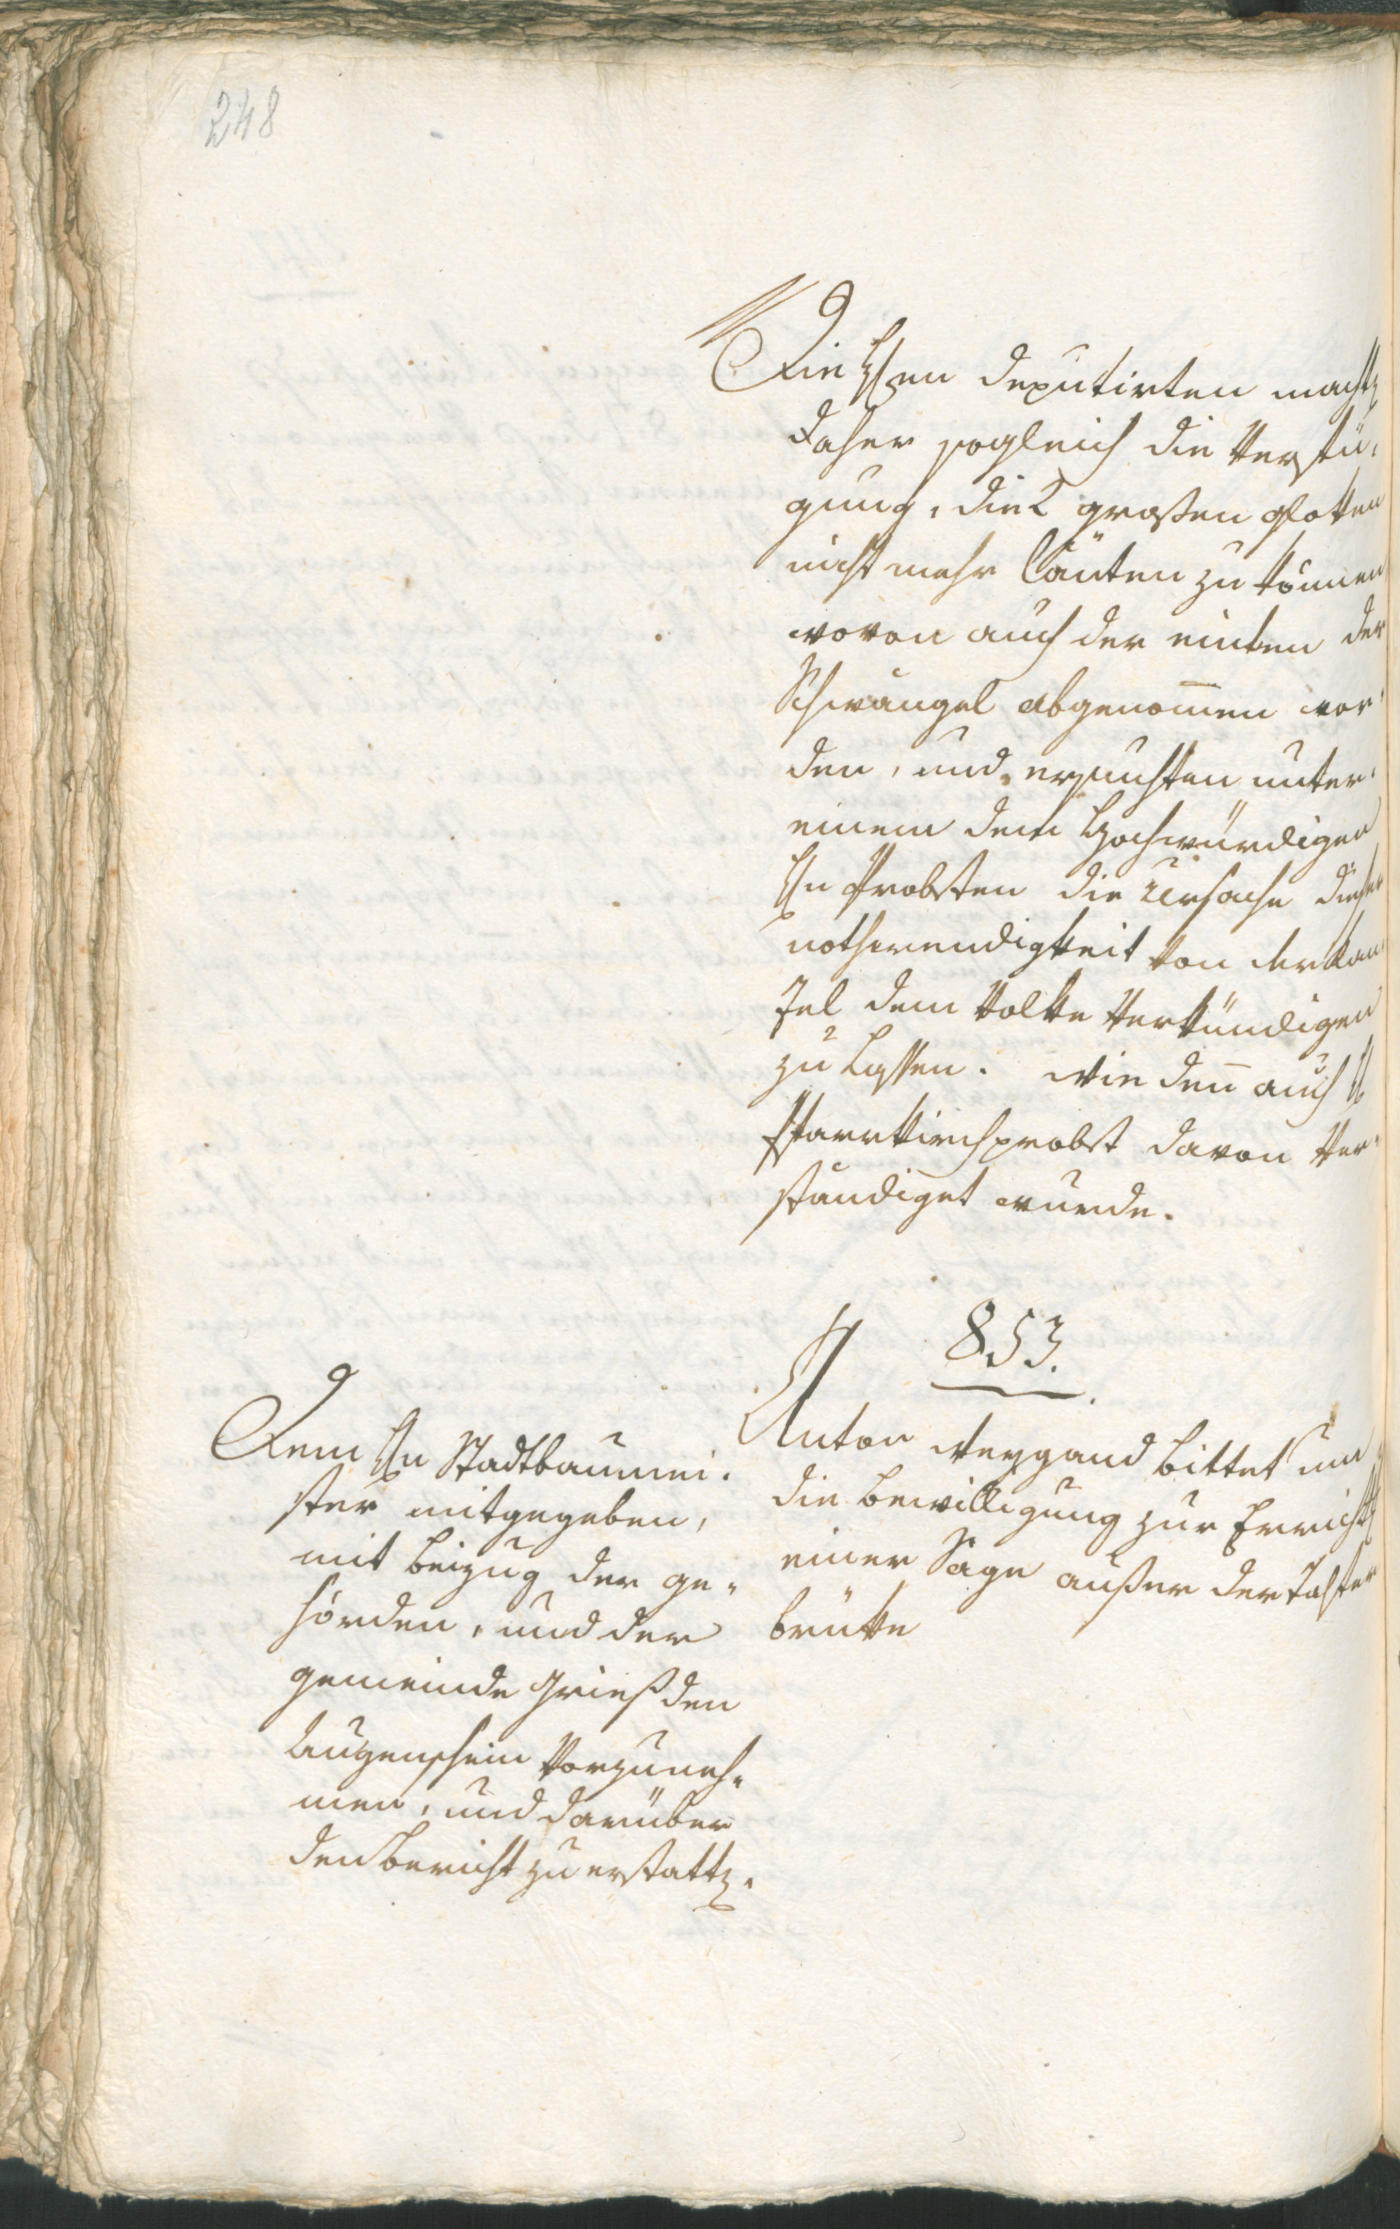 248
Die H en deputirten macht
daher sogleich die Verfü¬
gung, die 2 großen Gloken
nicht mehr läuten zu können
wovon auch der einten der
Schwängel abgenom̅en wor¬
den, und ersuchten unter¬
einem dem Hochwürdigen
H n Probsten die Ursache dieser
nothwendigkeit von der Kan¬
zel dem Volke Verkündigen
zu Lassen. wie den̅ auch H
Pfarrkirchprobst davon Ver¬
ständiget wurde.
853.
Anton Weygand bittet um
die bewilligung zur Erricht
einer Sage außer der Talfer
brüke
Dem H n Stadtbaumei¬
ster mitgegeben,
mit beizug der ge¬
hörden, und der
gemeinde Grieß den
Augenschein Vorzuneh¬
men, und darüber
den Bericht zu erstatt.